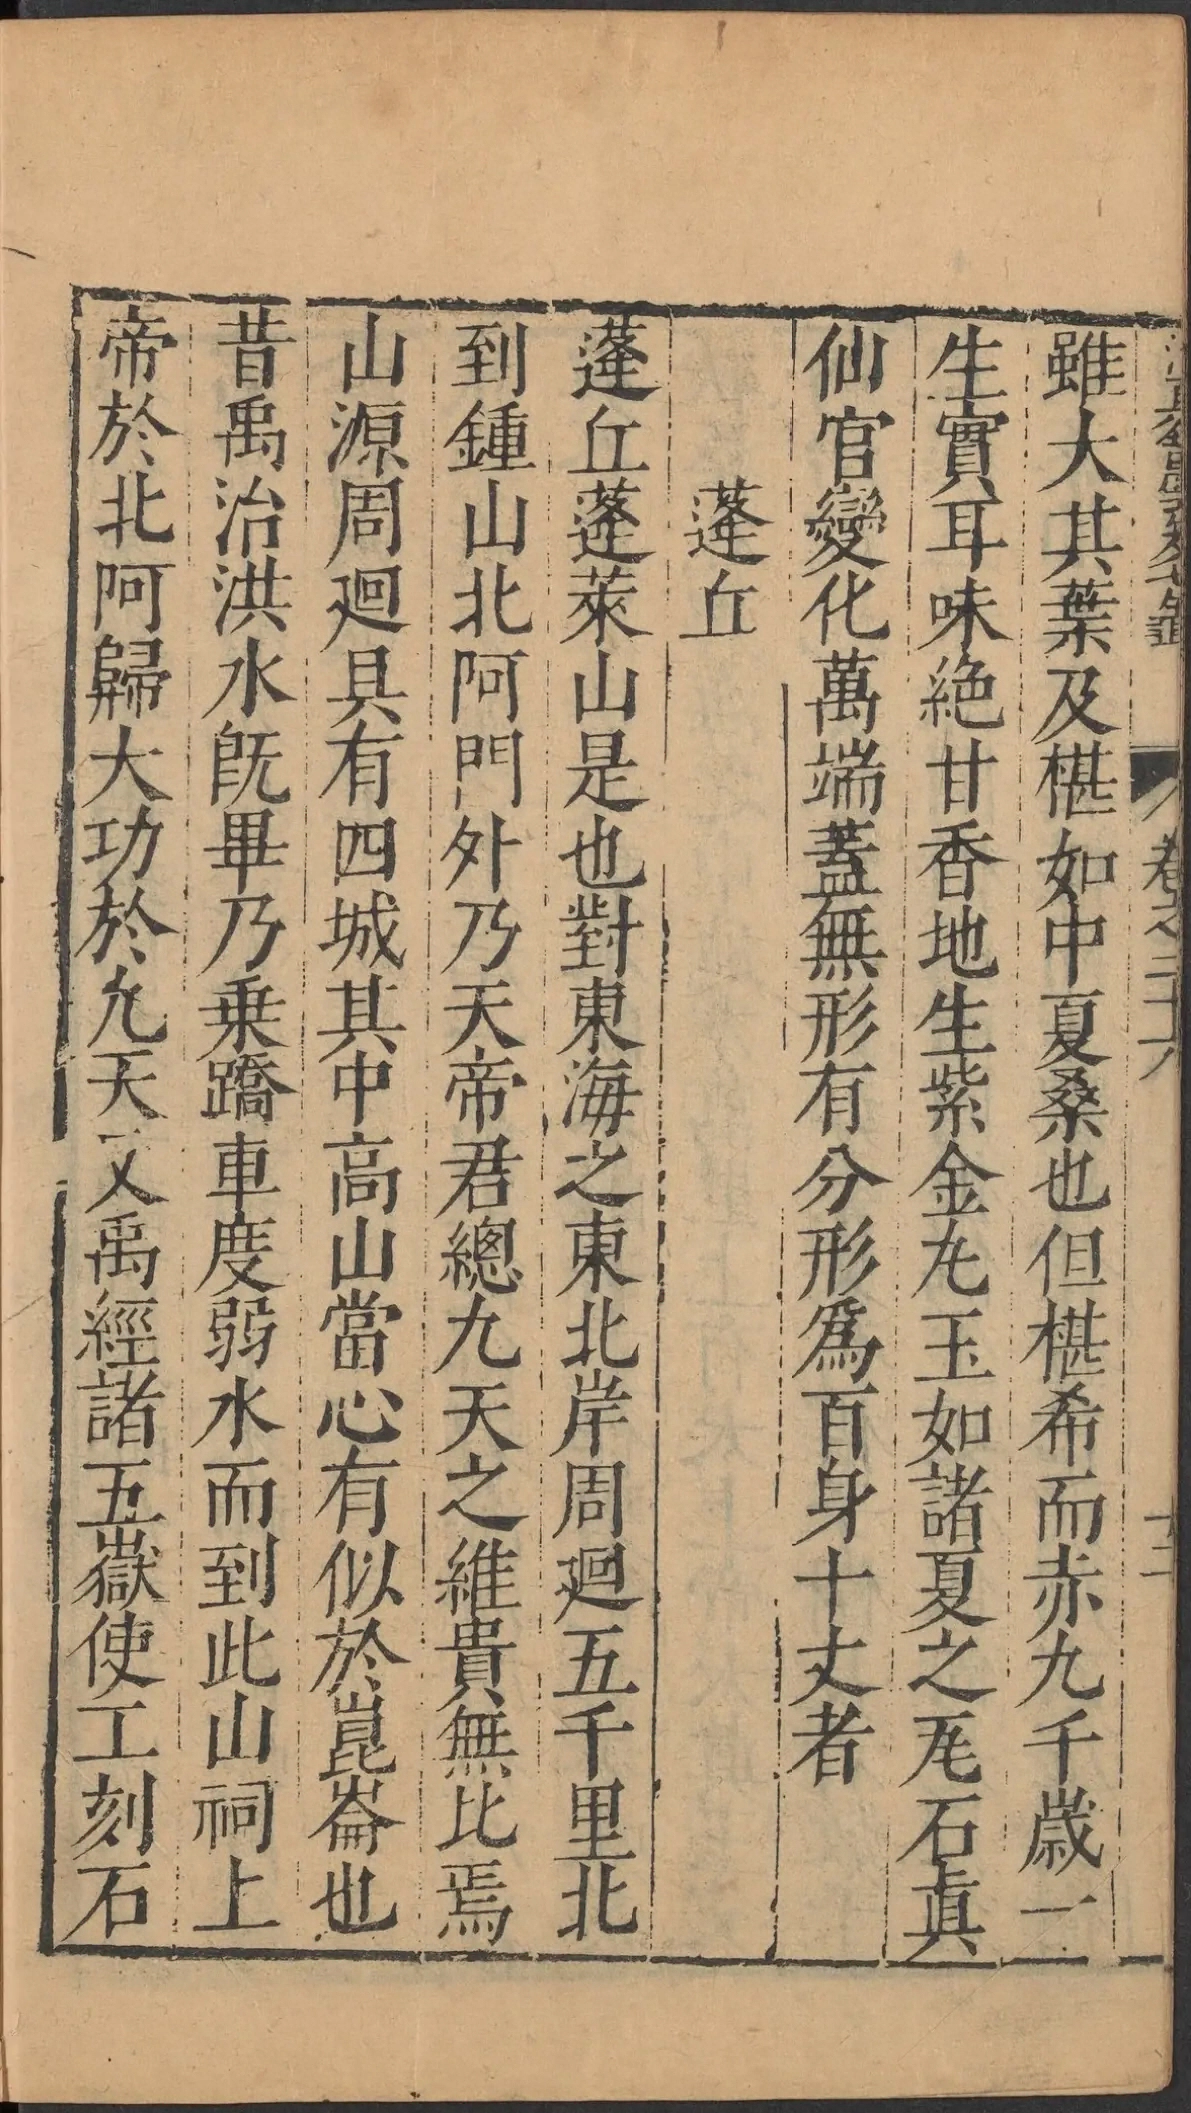 雖大其葉及椹如中夏桑也但椹希而赤九千歲一
生實耳味絶甘香地生紫金丸玉如諸夏之瓦石眞
仙官變化萬端蓋無形有分形爲百身十丈者
蓬丘
蓬丘蓬萊山是也對東海之東北岸周廻五千里北
到鍾山北阿門外乃天帝君總九天之維貴無比焉
山源周廻具有四城其中高山當心有似於崑崙也
昔禹治洪水旣畢乃乗蹻車度弱水而到此山祠上
帝於北阿歸大功於九天又禹經諸五嶽使工刻石
卷之二十六
十二